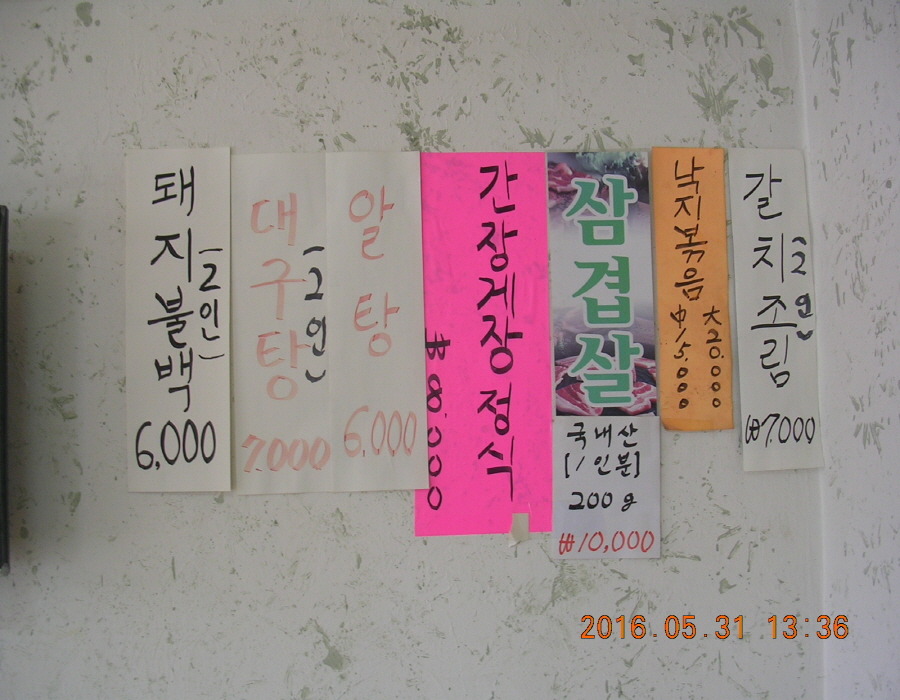 돼지불백
(2인)
6,000
대구탕
(2인)
7000
알탕
6,000
간장게장정식
₩8.000
삼겹살
국내산
[1인분]
200g
₩10,000
낙지볶음
大20.000
中15.000
갈치조림
(2인)
₩7.000
2016.05.31 13:36